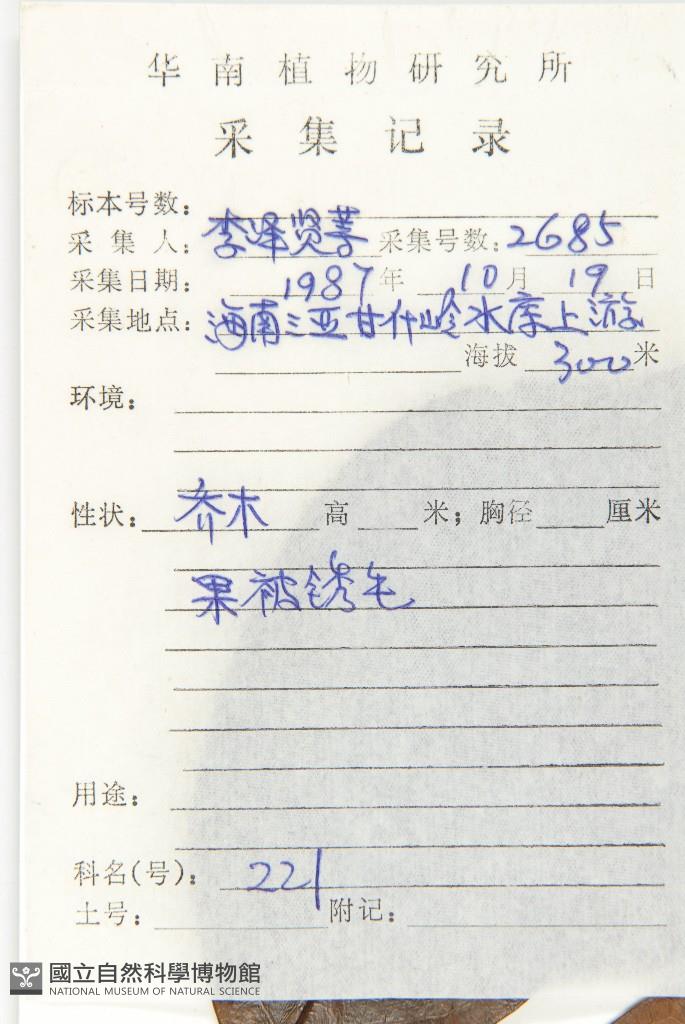 华南植物研究所
采集记录
标本号数:
采集人: 李泽贤等 采集号数: 2685
采集日期: 1987年 10月 19日
采集地点: 海南三亚甘什岭水库上游
海拔 300米
环境:
性状: 乔木 高 米; 胸径 厘米
果被锈毛
用途:
科名(号): 221
土号: 附记:
國立自然科學博物館
NATIONAL MUSEUM OF NATURAL SCIENCE